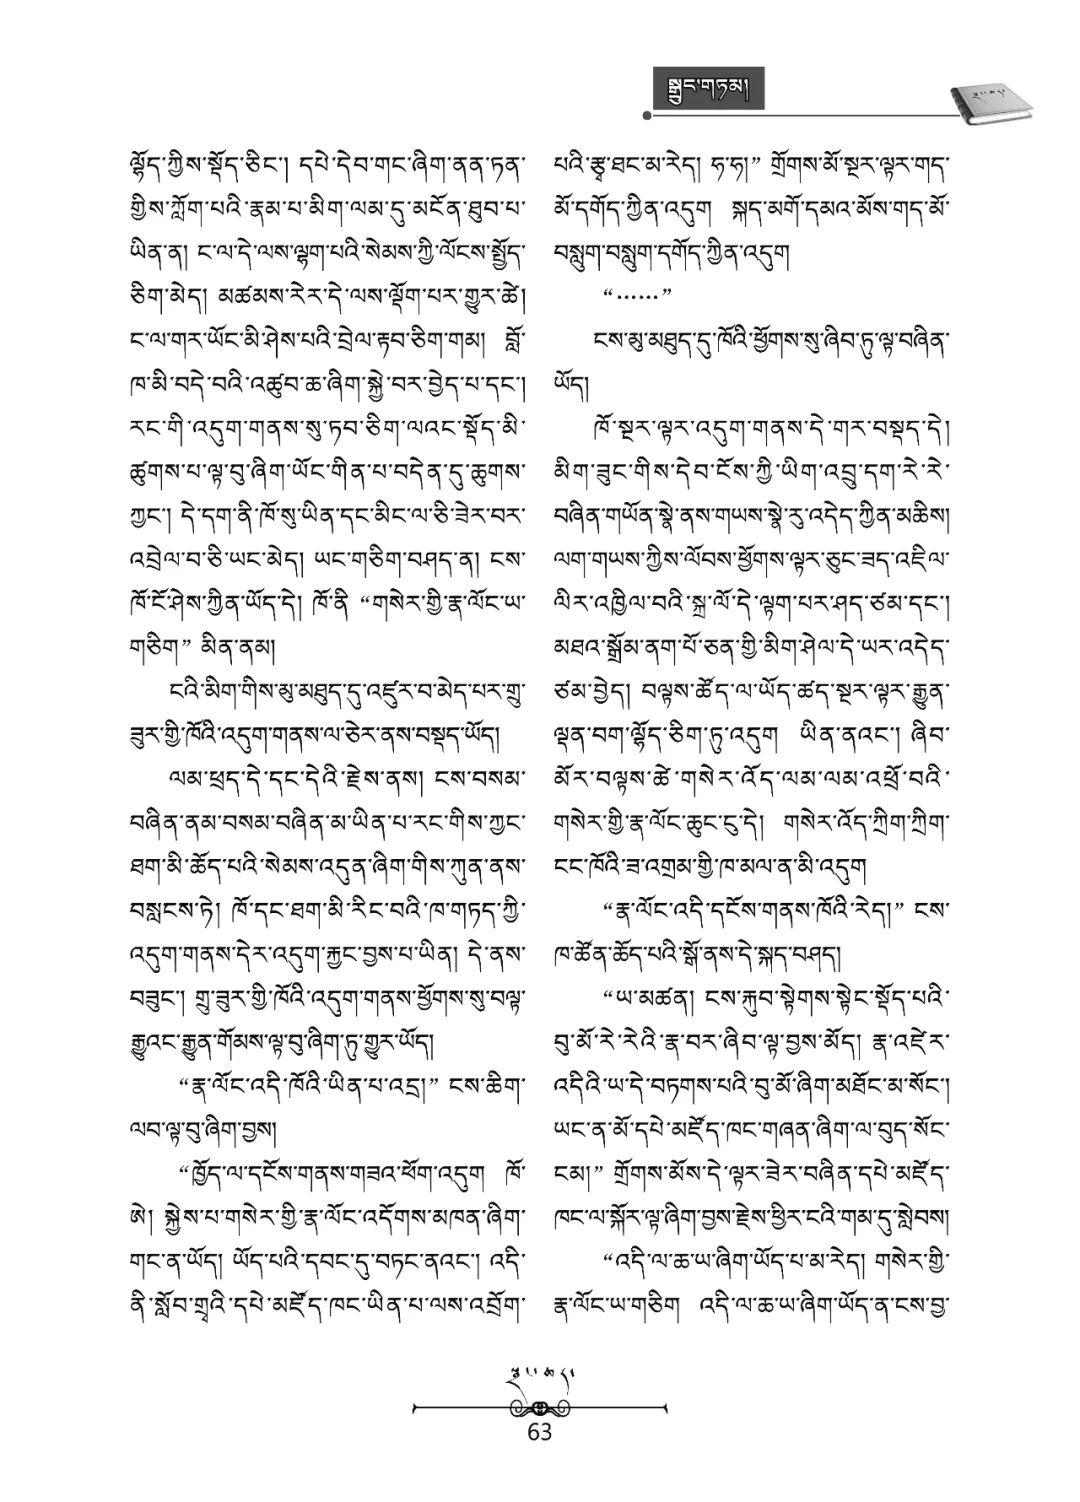 སྒྲུང་གཏམ།
ལྷོད་ཀྱིས་སྡོད་ཅིང་། དཔེ་དེབ་གང་ཞིག་ནན་ཏན་
གྱིས་ཀློག་པའི་རྣམ་པ་མིག་ལམ་དུ་མངོན་ཐུབ་པ་
ཡིན་ན། ང་ལ་དེ་ལས་ལྷག་པའི་སེམས་ཀྱི་ལོངས་སྤྱོད་
ཅིག་མེད། མཚམས་རེར་དེ་ལས་ལྡོག་པར་གྱུར་ཚེ།
ང་ལ་གར་ཡོང་མི་ཤེས་པའི་བྲེལ་རྟབ་ཅིག་གམ། བློ་
ཁ་མི་བདེ་བའི་འཚུབ་ཆ་ཞིག་སྐྱེ་བར་བྱེད་པ་དང་།
རང་གི་འདུག་གནས་སུ་ཏབ་ཅིག་ལའང་སྡོད་མི་
ཚུགས་པ་ལྟ་བུ་ཞིག་ཡོང་གིན་པ་བདེན་དུ་ཆུགས་
ཀྱང་། དེ་དག་ནི་ཁོ་སུ་ཡིན་དང་མིང་ལ་ཅི་ཟེར་བར་
འབྲེལ་བ་ཅི་ཡང་མེད། ཡང་གཅིག་བཤད་ན། ངས་
ཁོ་ངོ་ཤེས་ཀྱིན་ཡོད་དེ། ཁོ་ནི “གསེར་གྱི་རྣ་ལོང་ཡ་
གཅིག” མིན་ནམ།
ངའི་མིག་གིས་མུ་མཐུད་དུ་འཛུར་བ་མེད་པར་གྲུ་
ཟུར་གྱི་ཁོའི་འདུག་གནས་ལ་ཅེར་ནས་བསྡད་ཡོད།
ལམ་ཕྲད་དེ་དང་དེའི་རྗེས་ནས། ངས་བསམ་
བཞིན་ནམ་བསམ་བཞིན་མ་ཡིན་པ་རང་གིས་ཀྱང་
ཐག་མི་ཆོད་པའི་སེམས་འདུན་ཞིག་གིས་ཀུན་ནས་
བསླངས་ཏེ། ཁོ་དང་ཐག་མི་རིང་བའི་ཁ་གཏད་ཀྱི་
འདུག་གནས་དེར་འདུག་རྐྱང་བྱས་པ་ཡིན། དེ་ནས་
བཟུང་། གྲུ་ཟུར་གྱི་ཁོའི་འདུག་གནས་ཕྱོགས་སུ་བལྟ་
རྒྱུའང་རྒྱུན་གོམས་ལྟ་བུ་ཞིག་ཏུ་གྱུར་ཡོད།
“རྣ་ལོང་འདི་ཁོའི་ཡིན་པ་འདྲ།” ངས་ཆིག་
ལབ་ལྟ་བུ་ཞིག་བྱས།
“ཁྱོད་ལ་དངོས་གནས་གཟའ་ཕོག་འདུག ཁོ་
ཨེ། སྐྱེས་པ་གསེར་གྱི་རྣ་ལོང་འདོགས་མཁན་ཞིག་
གང་ན་ཡོད། ཡོད་པའི་དབང་དུ་བཏང་ནའང་། འདི་
ནི་སློབ་གྲྭའི་དཔེ་མཛོད་ཁང་ཡིན་པ་ལས་འབྲོག་
པའི་རྩྭ་ཐང་མ་རེད། ཧ་ཧ།” གྲོགས་མོ་སྔར་ལྟར་གད་
མོ་དགོད་ཀྱིན་འདུག སྐད་མགོ་དམའ་མོས་གད་མོ་
བསླུག་བསླུག་དགོད་ཀྱིན་འདུག
“……”
ངས་མུ་མཐུད་དུ་ཁོའི་ཕྱོགས་སུ་ཞིབ་ཏུ་ལྟ་བཞིན་
ཡོད།
ཁོ་སྔར་ལྟར་འདུག་གནས་དེ་གར་བསྡད་དེ།
མིག་ཟུང་གིས་དེབ་ངོས་ཀྱི་ཡིག་འབྲུ་དག་རེ་རེ་
བཞིན་གཡོན་སྣེ་ནས་གཡས་སྣེ་རུ་འདེད་ཀྱིན་མཆིས།
ལག་གཡས་ཀྱིས་ལོབས་ཕྱོགས་ལྟར་ཅུང་ཟད་འཇིལ་
ལིར་འཁྱིལ་བའི་སྐྲ་ལོ་དེ་ལྟག་པར་ཤད་ཙམ་དང་།
མཐའ་སྒྲོམ་ནག་པོ་ཅན་གྱི་མིག་ཤེལ་དེ་ཡར་འདེད་
ཙམ་བྱེད། བལྟས་ཚོད་ལ་ཡོད་ཚད་སྔར་ལྟར་རྒྱུན་
ལྡན་བག་ལྷོད་ཅིག་ཏུ་འདུག ཡིན་ནའང་། ཞིབ་
མོར་བལྟས་ཚེ་གསེར་འོད་ལམ་ལམ་འཕྲོ་བའི་
གསེར་གྱི་རྣ་ལོང་ཆུང་ངུ་དེ། གསེར་འོད་ཀྲིག་ཀྲིག་
ངང་ཁོའི་ཟ་འགྲམ་གྱི་ཁ་མལ་ན་མི་འདུག
“རྣ་ལོང་འདི་དངོས་གནས་ཁོའི་རེད།” ངས་
ཁ་ཚོན་ཆོད་པའི་སྒོ་ནས་དེ་སྐད་བཤད།
“ཡ་མཚན། ངས་རྐུབ་སྟེགས་སྟེང་སྡོད་པའི་
བུ་མོ་རེ་རེའི་རྣ་བར་ཞིབ་ལྟ་བྱས་མོད། རྣ་འཛེར་
འདིའི་ཡ་དེ་བཏགས་པའི་བུ་མོ་ཞིག་མཐོང་མ་སོང་།
ཡང་ན་མོ་དཔེ་མཛོད་ཁང་གཞན་ཞིག་ལ་བུད་སོང་
ངམ།” གྲོགས་མོས་དེ་ལྟར་ཟེར་བཞིན་དཔེ་མཛོད་
ཁང་ལ་སྐོར་ལྟ་ཞིག་བྱས་རྗེས་ཕྱིར་ངའི་གམ་དུ་སླེབས།
“འདི་ལ་ཆ་ཡ་ཞིག་ཡོད་པ་མ་རེད། གསེར་གྱི་
རྣ་ལོང་ཡ་གཅིག འདི་ལ་ཆ་ཡ་ཞིག་ཡོད་ན་ངས་བྱ་
63